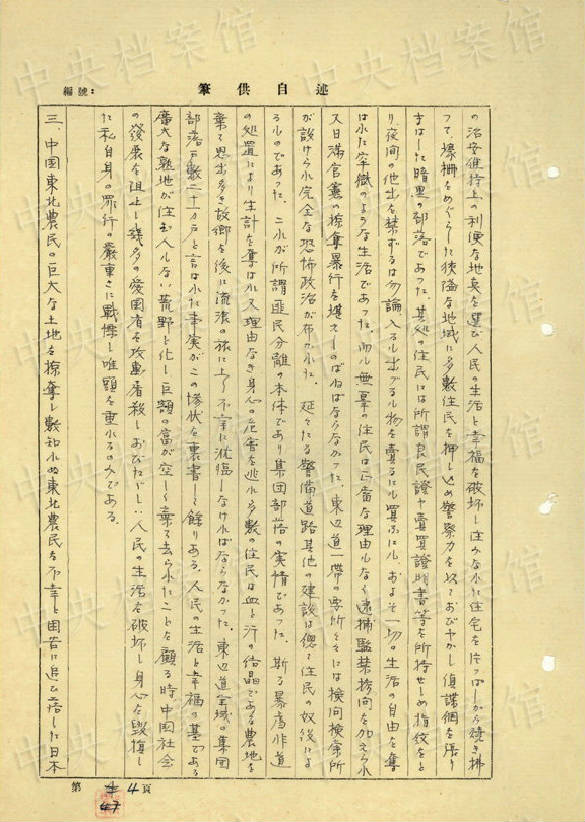 述自供筆
編號：
の治安維持上の利便な地点を選び人民の生活と幸福を破壊し住みなれた住宅を片っぱしから焼き拂
って、壕柵をめぐらした狭隘な地域に多数住民を押し込め警察力を以ておびやかし偵諜網を張り
すはした暗黒の部落であった。其処の住民には所謂良民證、賣買證明書等を所持せしめ指紋をと
り夜間の他出を禁ずるは勿論入るも出づるも物を賣るにも買ふにもおよそ一切の生活の自由を奪
はれた牢獄のような生活であった。而も無辜の住民は正当な理由もなく逮捕監禁拷問を加えられ
又日満官憲の掠奪暴行を堪えしのばねばならなかった。東辺道一帯の要所々々には検問検索所
が設けられ完全な恐怖政治が布かれた。延々たる警備道路其他の建設は総て住民の奴役によ
るものであった。これが所謂匪民分離の本体であり集団部落の実情であった。斯る暴虐非道
の処置により生計を奪はれ又理由なき身心の危害を逃れ多数の住民は血と汗の結晶である農地を
棄て思出多き故郷を後に流浪の旅に上り不幸に沈淪しなければならなかった。東辺道全域の集団
部落戸数二十一万戸と言はれた事実がこの惨状を裏書し餘りある。人民の生活と幸福の基である
廣大な熟地が住む人もない荒野と化し巨額の富が空しく棄て去られたことを顧る時、中国社会
の發展を阻止し幾多の愛国者を攻撃屠殺しおびただしい人民の生活を破壊し身心を毀損し
た私自身の罪行の嚴重さに戰慄し唯頭を垂れるのみである。
三、中国東北農民の巨大な土地を掠奪し数知れぬ東北農民を不幸と困苦に追ひ落した日本
第 4 頁
47
中央档案馆